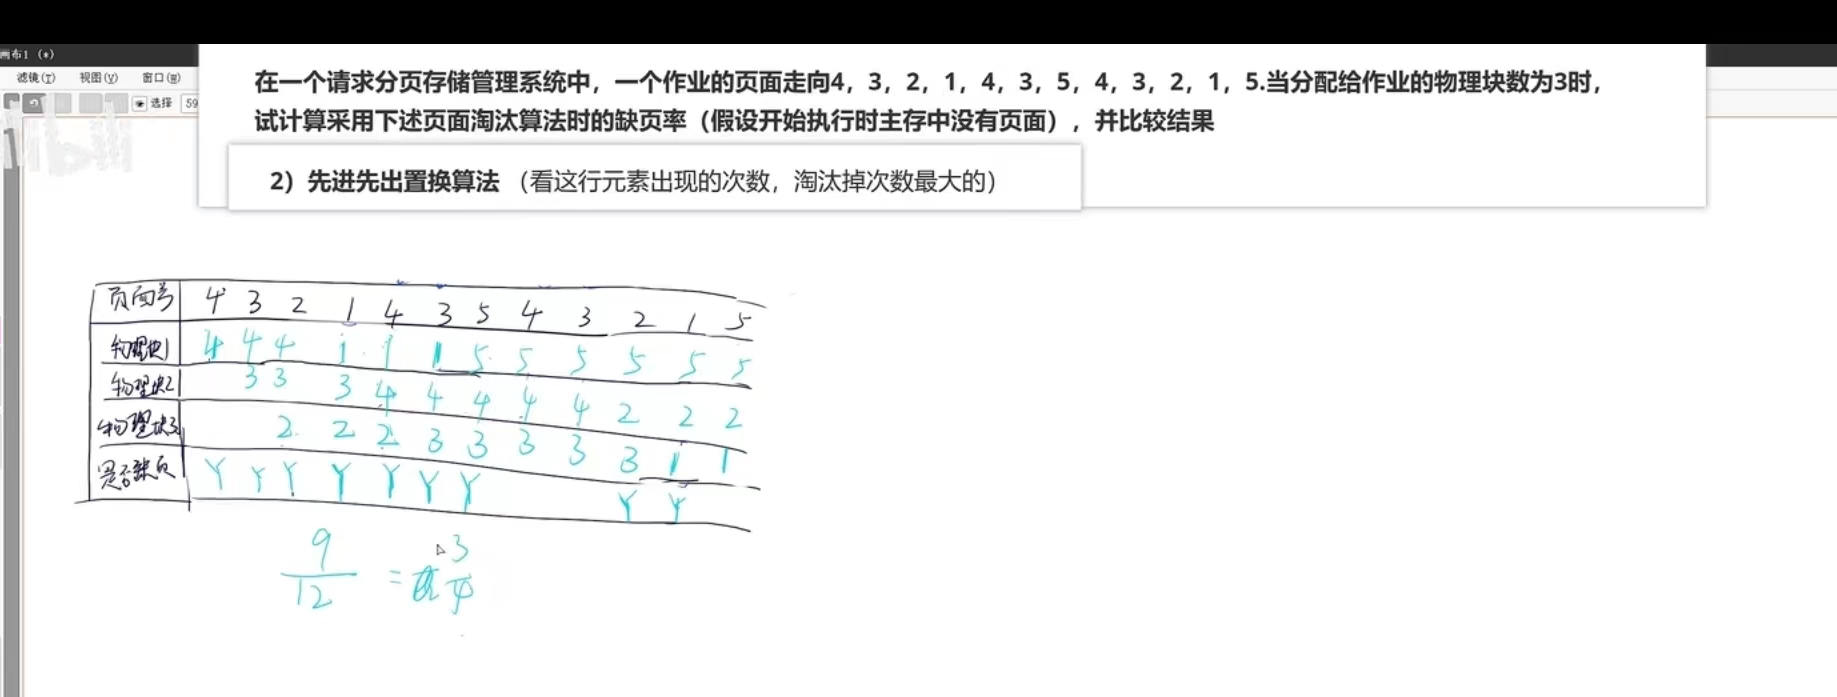 画布1 (*)
滤镜(T) 视图(V) 窗口(W)
选择 59
在一个请求分页存储管理系统中，一个作业的页面走向4，3，2，1，4，3，5，4，3，2，1，5.当分配给作业的物理块数为3时，
试计算采用下述页面淘汰算法时的缺页率（假设开始执行时主存中没有页面），并比较结果
2）先进先出置换算法 （看这行元素出现的次数，淘汰掉次数最大的）
页面号 4 3 2 1 4 3 5 4 3 2 1 5
物理块1 4 4 4 1 1 1 5 5 5 5 5 5
物理块2 3 3 3 4 4 4 4 4 2 2 2
物理块3 2 2 2 3 3 3 3 3 1 1
是否缺页 Y Y Y Y Y Y Y Y Y
9/12 = 3/4